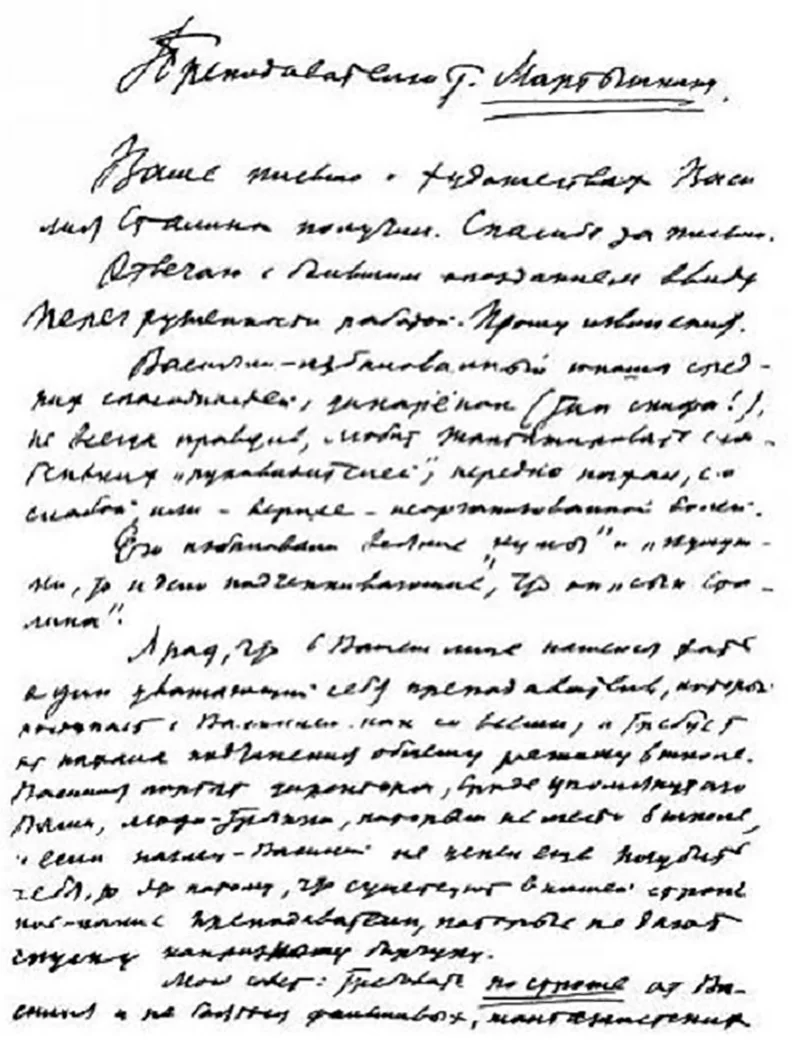 Преподавателю т. Мартышину.
Ваше письмо о художествах Васи
лия Сталина получил. Спасибо за письмо.
Отвечаю с большим опозданием ввиду
перегруженности работой. Прошу извинения.
Василий – избалованный юноша сред-
них способностей, дикарёнок (тип скифа!),
не всегда правдив, любит шантажировать сла-
беньких „руководителей", нередко нахал, со
слабой, или – вернее – неорганизованной волей.
Его избаловали всякие „кумы" и „кумуш-
ки", то и дело подчеркивающие, что он „сын Ста-
лина".
Я рад, что в Вашем лице нашелся хоть
один уважающий себя преподаватель, который
поступает с Василием как со всеми, и требует
от нахала подчинения общему режиму в школе.
Василия портят директора, вроде упомянутого
Вами, люди-тряпки, которым не место в школе,
и если наглец-Василий не успел еще погубить
себя, то это потому, что существуют в нашей стране
кое-какие преподаватели, которые не дают
спуску капризному барчуку.
Мой совет: требовать построже от Ва-
силия и не бояться фальшивых, шантажистских